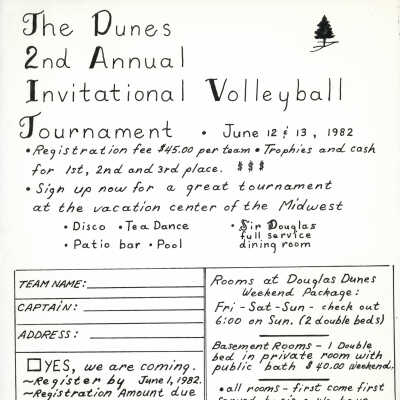 The Dunes
2nd Annual
Invitational Volleyball
Tournament • June 12 & 13, 1982
• Registration fee $45.00 per team • Trophies and cash
for 1st, 2nd and 3rd place. $ $ $
• Sign up now for a great tournament
at the vacation center of the Midwest
• Disco • Tea Dance
• Patio bar • Pool
• Sir Douglas
full service
dining room
TEAM NAME:
CAPTAIN:
ADDRESS:
YES, we are coming.
~Register by June 1, 1982.
~Registration Amount due
Rooms at Douglas Dunes
Weekend Package:
Fri - Sat - Sun - check out
6:00 on Sun. (2 double beds)
Basement Rooms - 1 Double
bed in private room with
public bath $40.00 weekend.
• all rooms - first come first